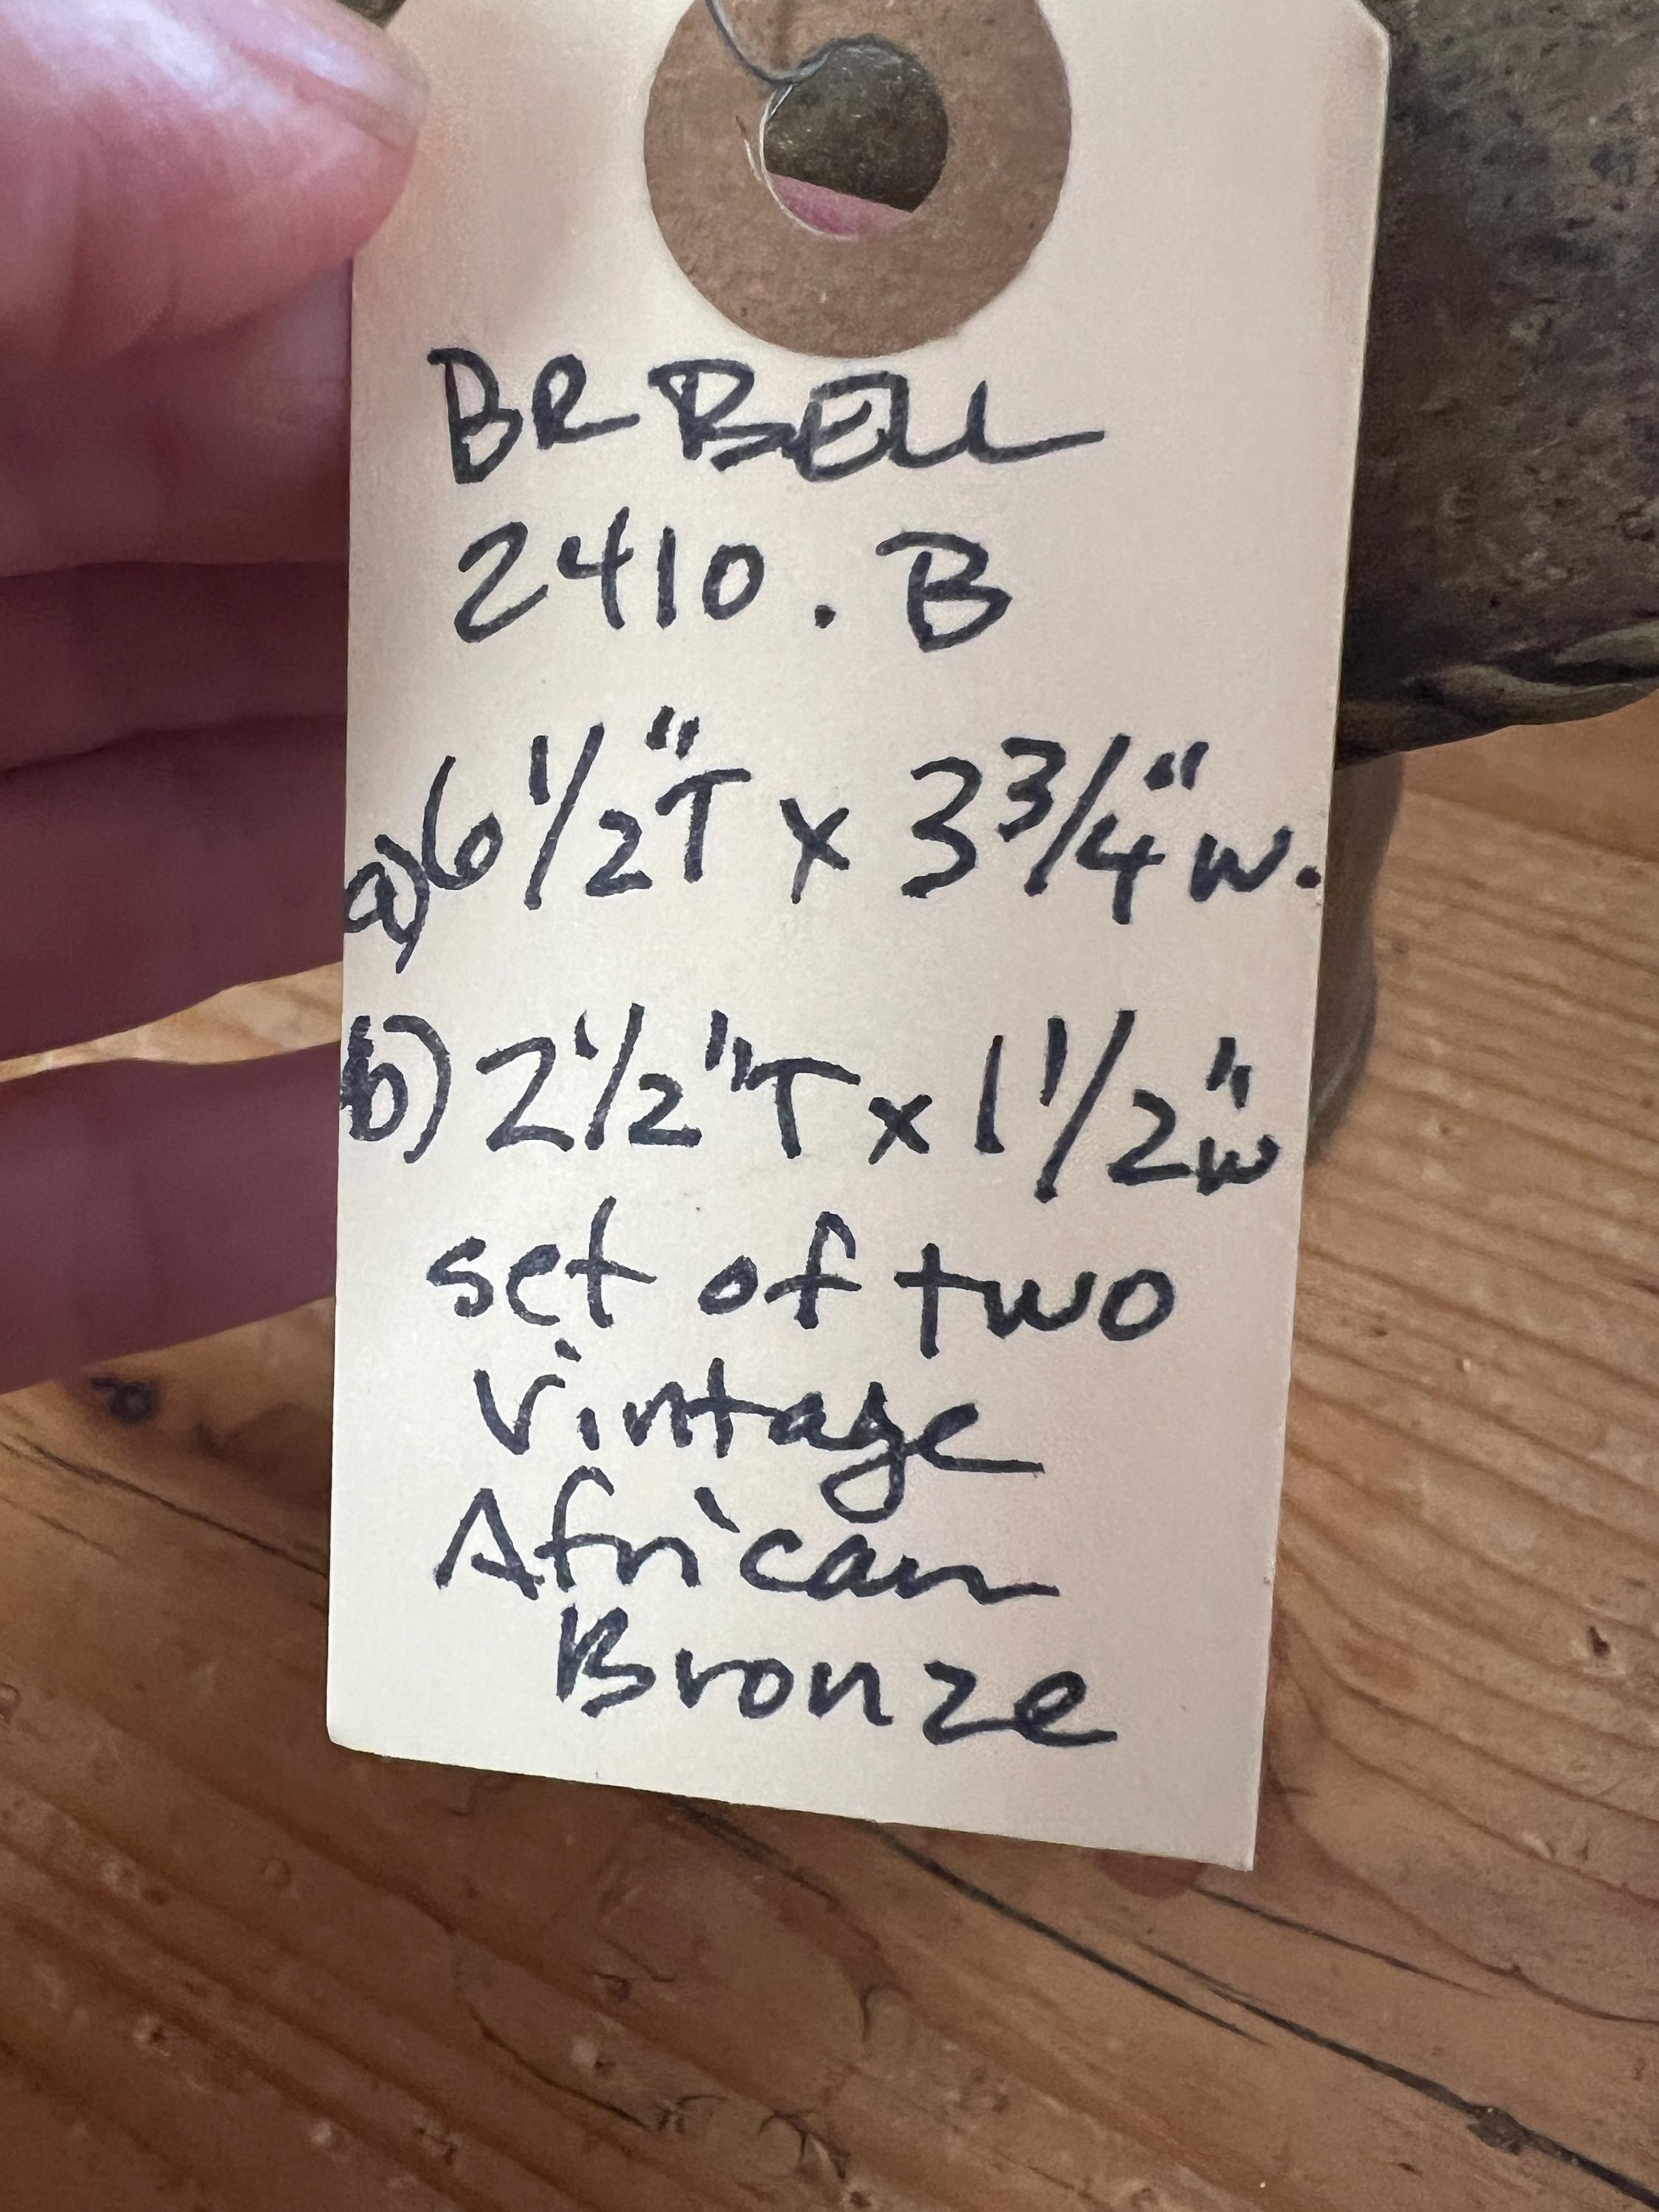 BR BELL
2410.B
a) 6 1/2" T x 3 3/4" W.
b) 2 1/2" T x 1 1/2" W
set of two
Vintage
African
Bronze